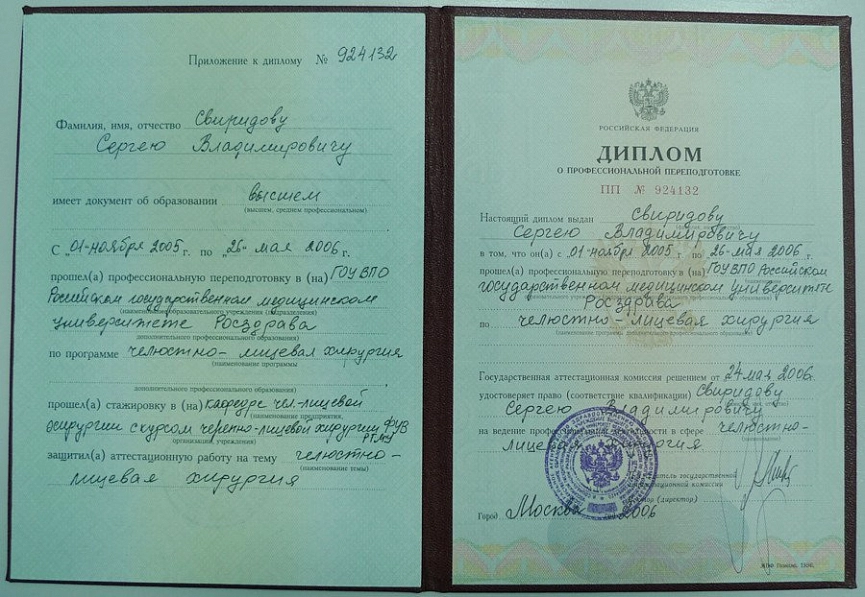 Приложение к диплому № 924132
Фамилия, имя, отчество Свиридову
Сергею Владимировичу
имеет документ об образовании высшем
(высшем, среднем профессиональном)
С „01-ноября 2005 г. по „26“ мая 2006 г.
прошел(а) профессиональную переподготовку в (на) ГОУ ВПО
Российском государственном медицинском
(наименование образовательного учреждения (подразделения)
университете Росздрава
дополнительного профессионального образования)
по программе челюстно-лицевая хирургия
(наименование программы
дополнительного профессионального образования)
прошел(а) стажировку в (на) кафедре чел-лицевой
(наименование предприятия,
хирургии с курсом черепно-лицевой хирургии ФУВ
РГМУ
организации, учреждения)
защитил(а) аттестационную работу на тему челюстно-
(наименование темы)
лицевая хирургия
РОССИЙСКАЯ ФЕДЕРАЦИЯ
ДИПЛОМ
О ПРОФЕССИОНАЛЬНОЙ ПЕРЕПОДГОТОВКЕ
ПП № 924132
Настоящий диплом выдан Свиридову
Сергею Владимировичу
в том, что он(а) с „01-ноября 2005 г. по 26-мая 2006 г.
прошел(а) профессиональную переподготовку в (на) ГОУ ВПО Российском
государственном медицинском университете
Росздрава
по челюстно-лицевая хирургия
Государственная аттестационная комиссия решением от 24 мая 2006г.
удостоверяет право (соответствие квалификации) Свиридову
Сергею Владимировичу
на ведение профессиональной деятельности в сфере челюстно-
(наименование)
лицевая хирургия
государственной
аттестационной комиссии
(директор)
Город Москва 2006